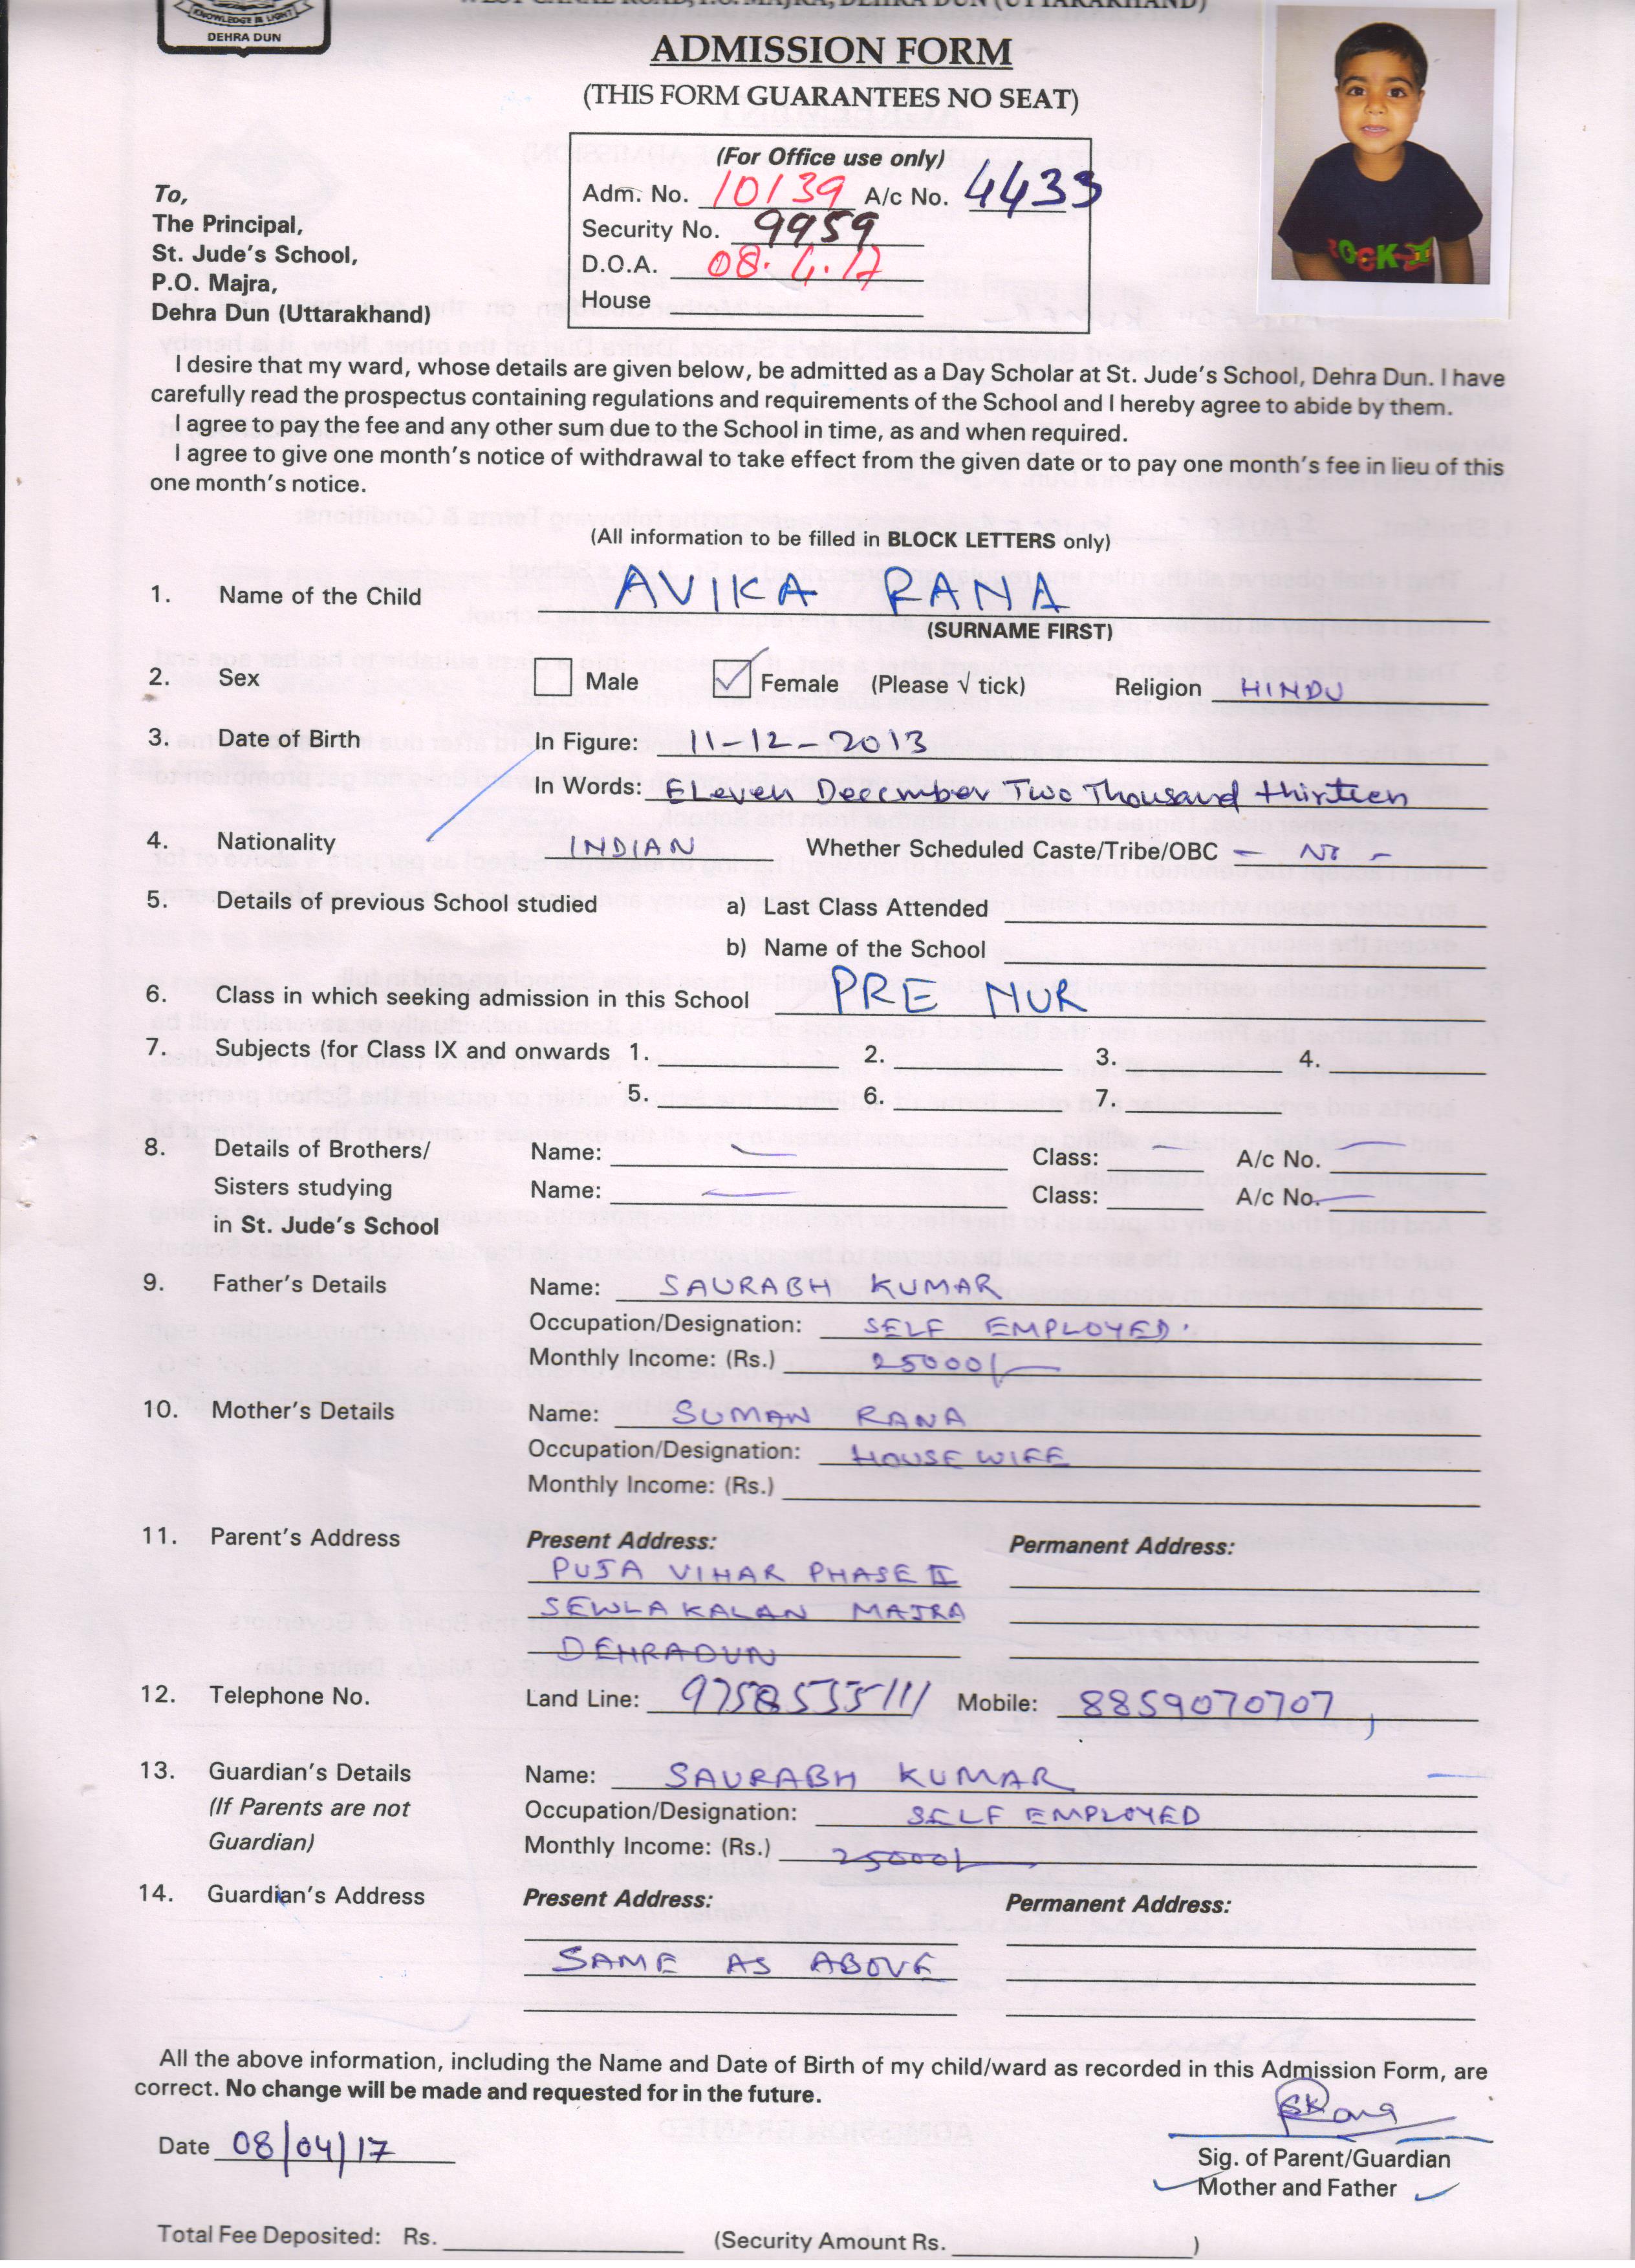 KNOWLEDGE IS LIGHT
DEHRA DUN
WEST CANAL ROAD, P.O. MAJRA, DEHRA DUN (UTTARAKHAND)
ADMISSION FORM
(THIS FORM GUARANTEES NO SEAT)
(For Office use only)
Adm. No. 10139 A/c No. 4433
Security No. 9959
D.O.A. 08.4.17
House
To,
The Principal,
St. Jude's School,
P.O. Majra,
Dehra Dun (Uttarakhand)
I desire that my ward, whose details are given below, be admitted as a Day Scholar at St. Jude's School, Dehra Dun. I have
carefully read the prospectus containing regulations and requirements of the School and I hereby agree to abide by them.
I agree to pay the fee and any other sum due to the School in time, as and when required.
I agree to give one month's notice of withdrawal to take effect from the given date or to pay one month's fee in lieu of this
one month's notice.
(All information to be filled in BLOCK LETTERS only)
1. Name of the Child AVIKA RANA
(SURNAME FIRST)
2. Sex Male ✓ Female (Please √ tick) Religion HINDU
3. Date of Birth In Figure: 11-12-2013
In Words: ELeven December Two Thousand thirteen
4. Nationality INDIAN Whether Scheduled Caste/Tribe/OBC - NO -
5. Details of previous School studied a) Last Class Attended
b) Name of the School
6. Class in which seeking admission in this School PRE NUR
7. Subjects (for Class IX and onwards 1. 2. 3. 4.
5. 6. 7.
8. Details of Brothers/ Name: — Class: — A/c No. —
Sisters studying Name: — Class: A/c No. —
in St. Jude's School
9. Father's Details Name: SAURABH KUMAR
Occupation/Designation: SELF EMPLOYED.
Monthly Income: (Rs.) 25000/-
10. Mother's Details Name: SUMAN RANA
Occupation/Designation: HOUSE WIFE
Monthly Income: (Rs.)
11. Parent's Address Present Address: Permanent Address:
PUJA VIHAR PHASE II
SEWLA KALAN MAJRA
DEHRADUN
12. Telephone No. Land Line: 9758535111 Mobile: 8859070707,
13. Guardian's Details Name: SAURABH KUMAR
(If Parents are not Occupation/Designation: SELF EMPLOYED
Guardian) Monthly Income: (Rs.) 25000/-
14. Guardian's Address Present Address: Permanent Address:
SAME AS ABOVE
All the above information, including the Name and Date of Birth of my child/ward as recorded in this Admission Form, are
correct. No change will be made and requested for in the future.
SKRana
Date 08/04/17
Sig. of Parent/Guardian
Mother and Father
Total Fee Deposited: Rs. (Security Amount Rs. )